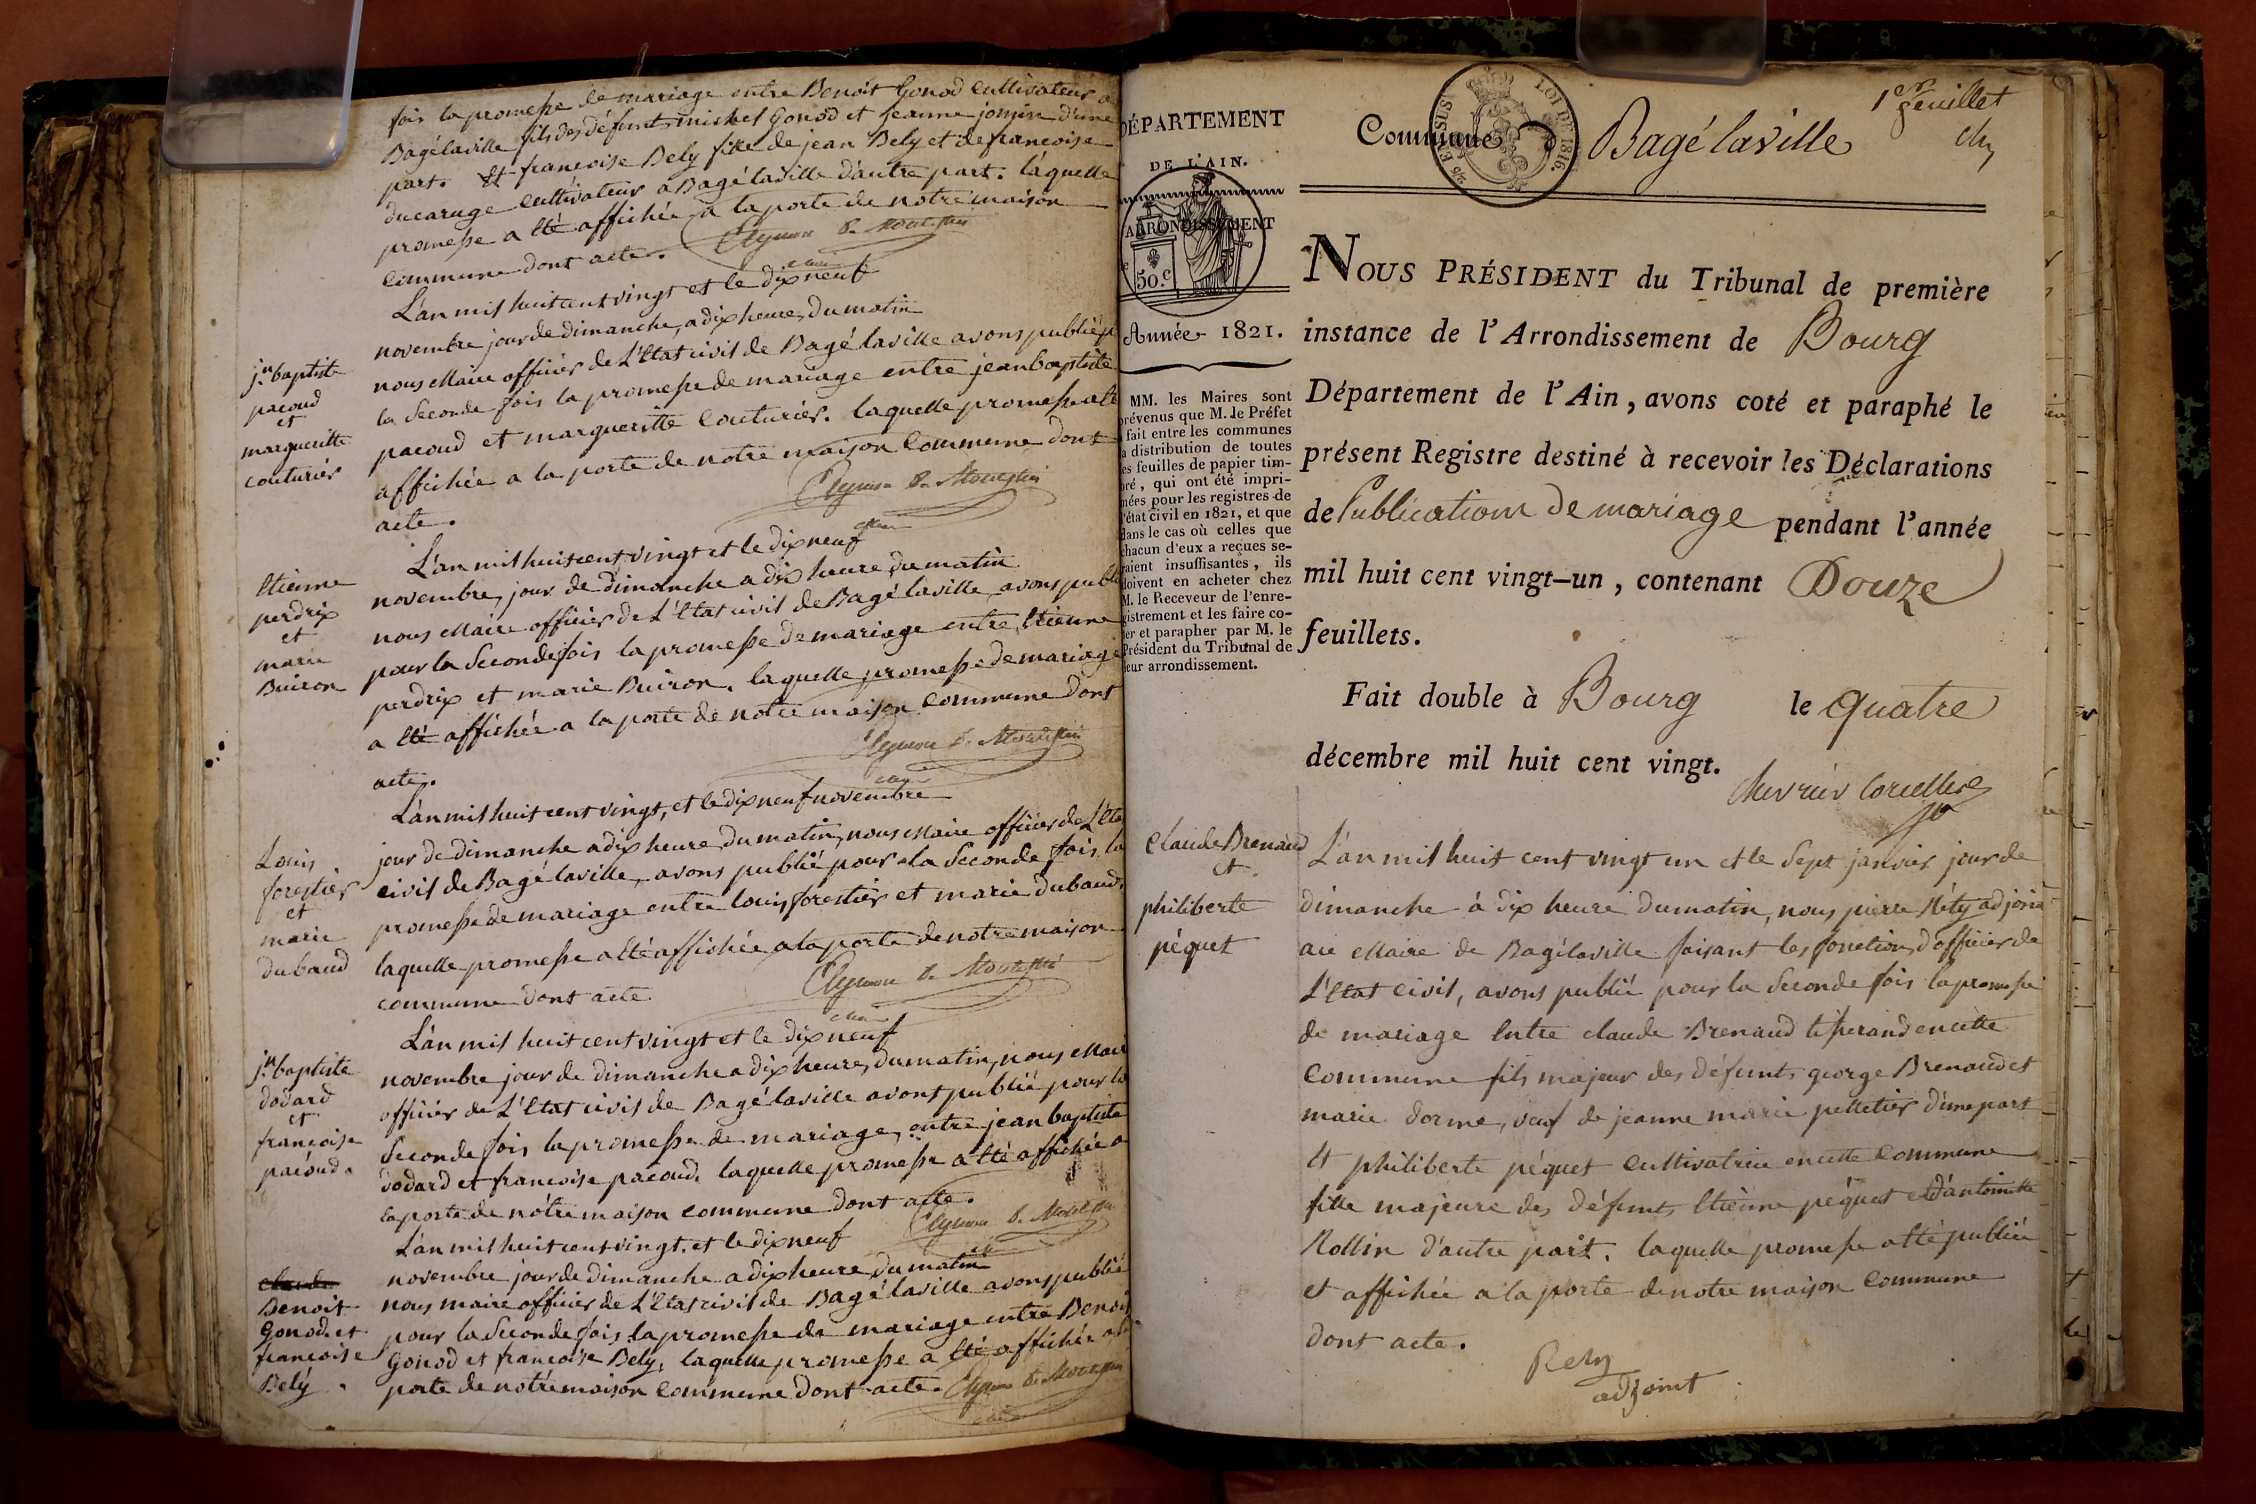 fois la promesse de mariage entre Benoit Gonod Cultivateur a
Bagélaville fils des défunts michel Gonod et Jeanne jomjon d'une
part. Et françoise Bely fille de jean Bely et de francoise
ducaruge Cultivateur a Bagé laville d'autre part. láquelle
promesse a Eté affichée a la porte de notre maison
Commune dont acte.
L'an mil huit cent vingt et le dix neuf
novembre jour de dimanche, a dix heure, du matin
nous Maire officier de L'Etat civil de Bagé laville avons publié p
la Seconde fois la promesse de mariage entre jean baptiste
pacoud et margueritte Couturier. laquelle promesse a Eté
affichée a la porte de notre maison Commune dont
acte.
jn baptiste
pacoud
et
margueritte
couturier
L'an mil huit cent vingt et le dix neuf
novembre, jour de dimanche a dix heure du matin
nous Maire officier de L'Etat civil de Bagé laville, avons publ
pour la Seconde fois la promesse de mariage entre Etienne
perdrix et marie Buiron. laquelle promesse de mariage
a Eté affichée a la porte de notre maison Commune dont
acte.
Etienne
perdrix
et
marie
Buiron
L'an mil huit cent vingt, et le dix neuf novembre
jour de dimanche a dix heure du matin, nous Maire officier de L'Eta
civil de Bagé laville, avons publié pour la Seconde fois la
promesse de mariage entre louis forestier et marie dubaud,
laquelle promesse a Eté affichée a la porte de notre maison
commune dont acte
Louis
forestier
et
marie
dubaud
L'an mil huit cent vingt et le dix neuf
novembre jour de dimanche a dix heure, du matin, nous Mair
officier de L'Etat civil de Bagé laville avons publié pour la
Seconde fois la promesse de mariage, entre jean baptiste
dodard et francoise pacoud. laquelle promesse a Eté affichée a
la porte de nôtre maison commune dont acte.
jn baptiste
dodard
et
françoise
pacoud.
L'an mil huit cent vingt. et le dix neuf
novembre jour de dimanche a dix heure du matin
nous maire officier de L'Etat civil de Bagé laville avons publié
pour la Seconde fois la promesse de mariage entre Benoi
Gonod et francoise Bely, laquelle promesse a Eté affichée a la
porte de nôtre maison Commune dont acte.
Benoit
Gonod. et
françoise
Bely.
1er feuillet
DÉPARTEMENT
DE L'AIN.
ARRONDISSEMENT
50.c
LOI DE 1816.
Année 1821.
MM. les Maires sont
prévenus que M. le Préfet
a fait entre les communes
la distribution de toutes
les feuilles de papier tim-
bré, qui ont été impri-
mées pour les registres de
l'état civil en 1821, et que
dans le cas où celles que
chacun d'eux a reçues se-
raient insuffisantes, ils
doivent en acheter chez
M. le Receveur de l'enre-
gistrement et les faire co-
ter et parapher par M. le
Président du Tribunal de
leur arrondissement.
Commune d Bagé laville
NOUS PRÉSIDENT du Tribunal de première
instance de l'Arrondissement de Bourg
Département de l'Ain, avons coté et paraphé le
présent Registre destiné à recevoir les Déclarations
de Publications de mariage pendant l'année
mil huit cent vingt-un, contenant Douze
feuillets.
Fait double à Bourg le quatre
décembre mil huit cent vingt.
Claude Brenaud
et.
philiberte
péquet
L'an mil huit cent vingt un et le Sept janvier jour de
dimanche à dix heure du matin, nous pierre Réty adjoin
au Maire de Bagélaville faisant les fonctions d'officier de
L'Etat Civil, avons publié pour la Seconde fois la promesse
de mariage Entre claude Brenaud tisserand en cette
Commune fils majeur des défunts george Brenaud et
marie dorme, veuf de jeanne marie pelletier d'une part
Et philiberte péquet Cultivatrice en cette Commune
fille majeure des défunts Etienne péquet et d'antoinette
Rollin d'autre part. laquelle promesse a Eté publiée
et affichée a la porte de notre maison Commune
dont acte.
Rety
adjoint